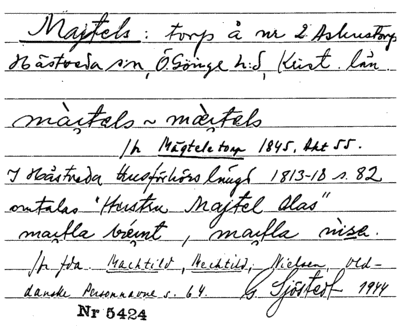 Majtels: torp å nr 2 Askustorp
Hästveda sn, Ö. Göinge h:d, Krist. län.
màjtəls ~ mæ̀jtəls
jfr Mägtele torp 1845, Akt 55.
I Hästveda husförhörslängd 1813-18 s. 82
omtalas "Hustru Majtel Olas"
maḭtla , maḭtla nisa.
jfr fda. Machtild, Mechtild, Nielsen, Old-
danske Personnavne s. 64. G Sjöstedt 1944
Nr 5424